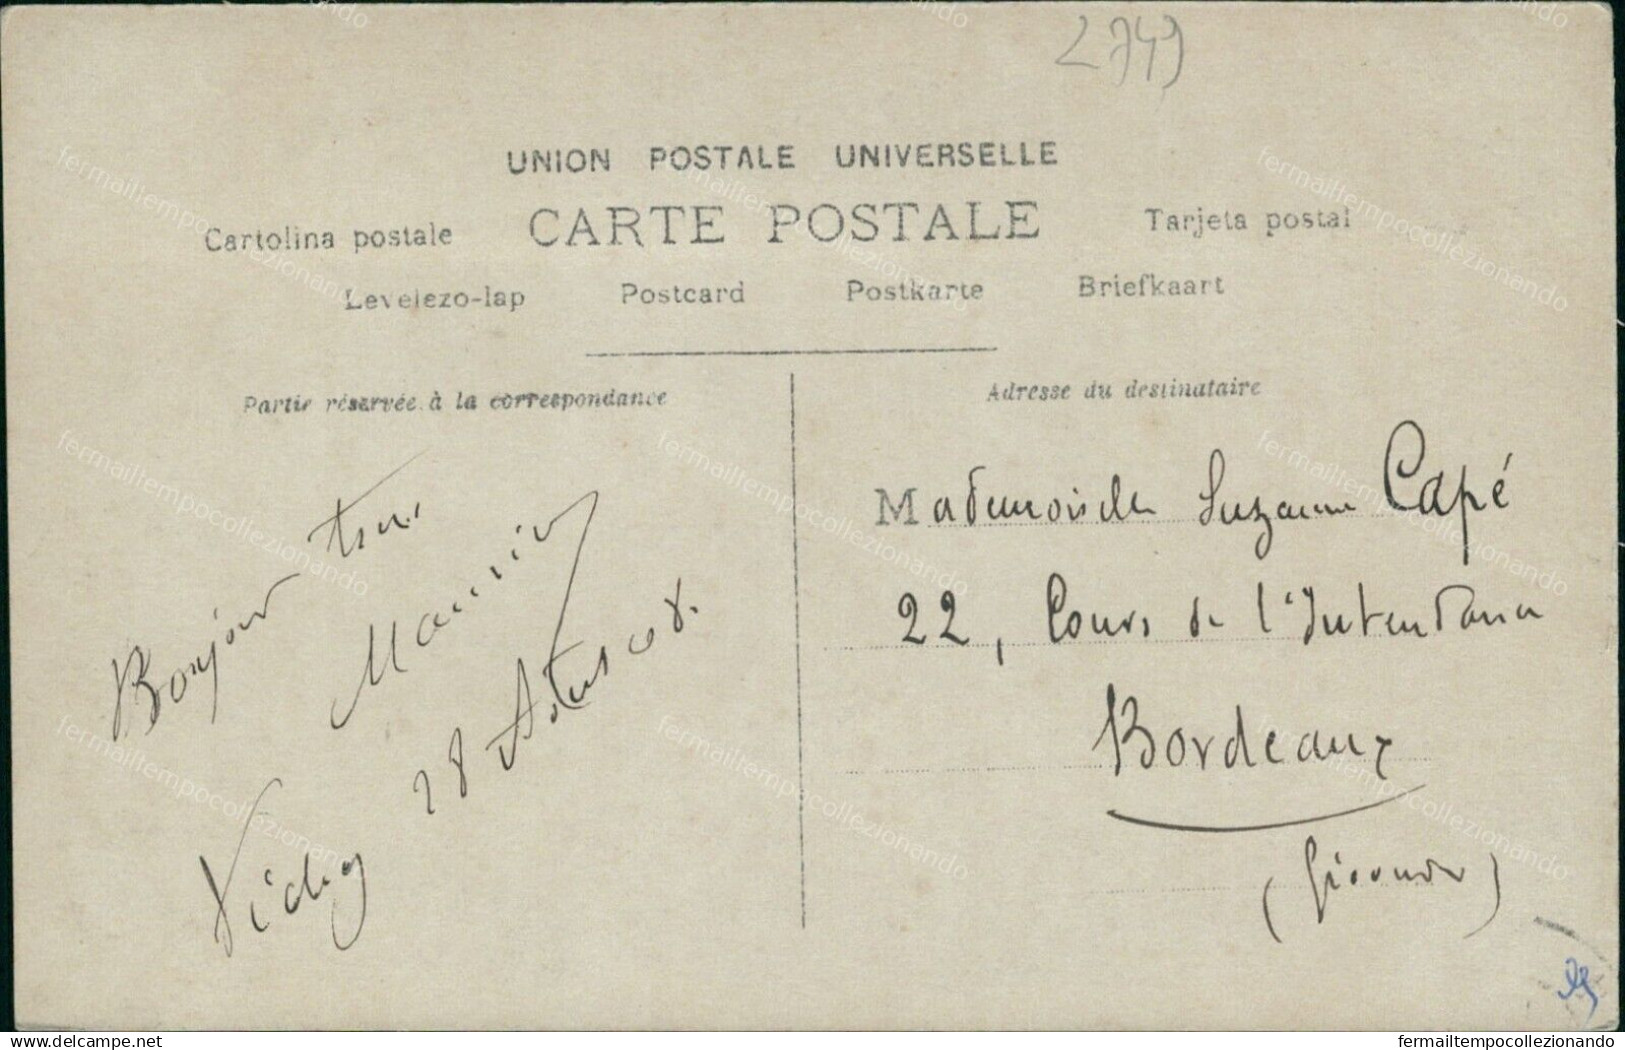 2749
UNION POSTALE UNIVERSELLE
CARTE POSTALE
Cartolina postale
Tarjeta postal
Levelezo-lap Postcard Postkarte Briefkaart
Partie réservée à la correspondance
Adresse du destinataire
Bonjour
Maurice
Vichy 28
Mademoiselle Suzanne Capé
22, Cours de l'Intendance
Bordeaux
(Gironde)
fermailtempocollezionando
delcampe.net
fermailtempocollezionando